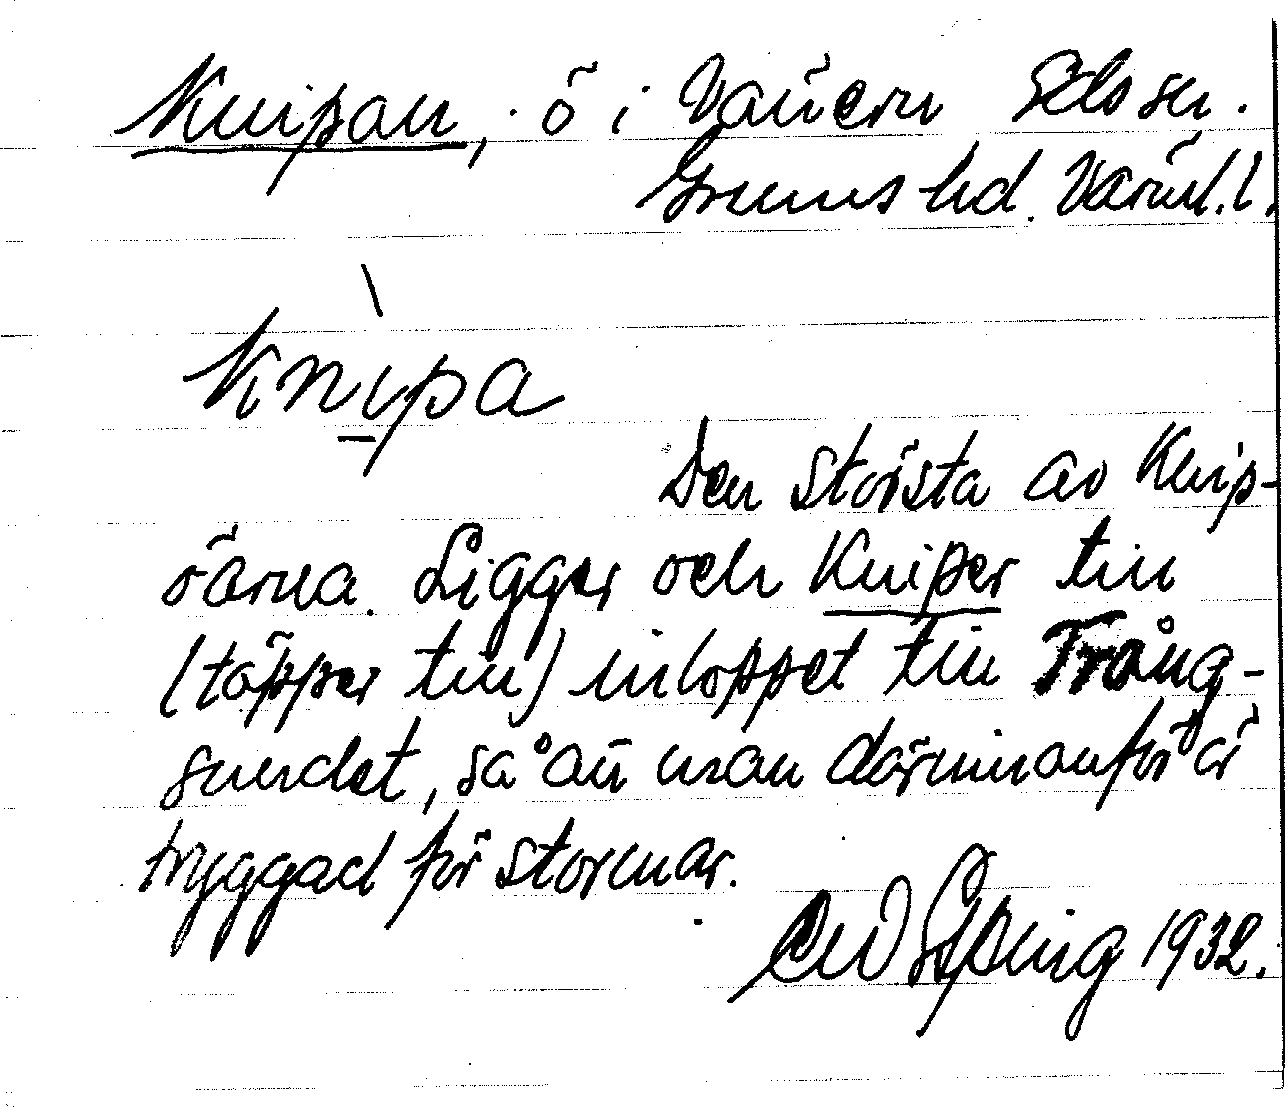 Knipan, ö i Vänern Eds sn.
Grums hd. Värml. l.
knìpa
Den största av Knip-
öarna. Ligger och Kniper till
(täpper till) inloppet till Trång-
sundet, så att man därinnanför är
tryggad för stormar.
1932.